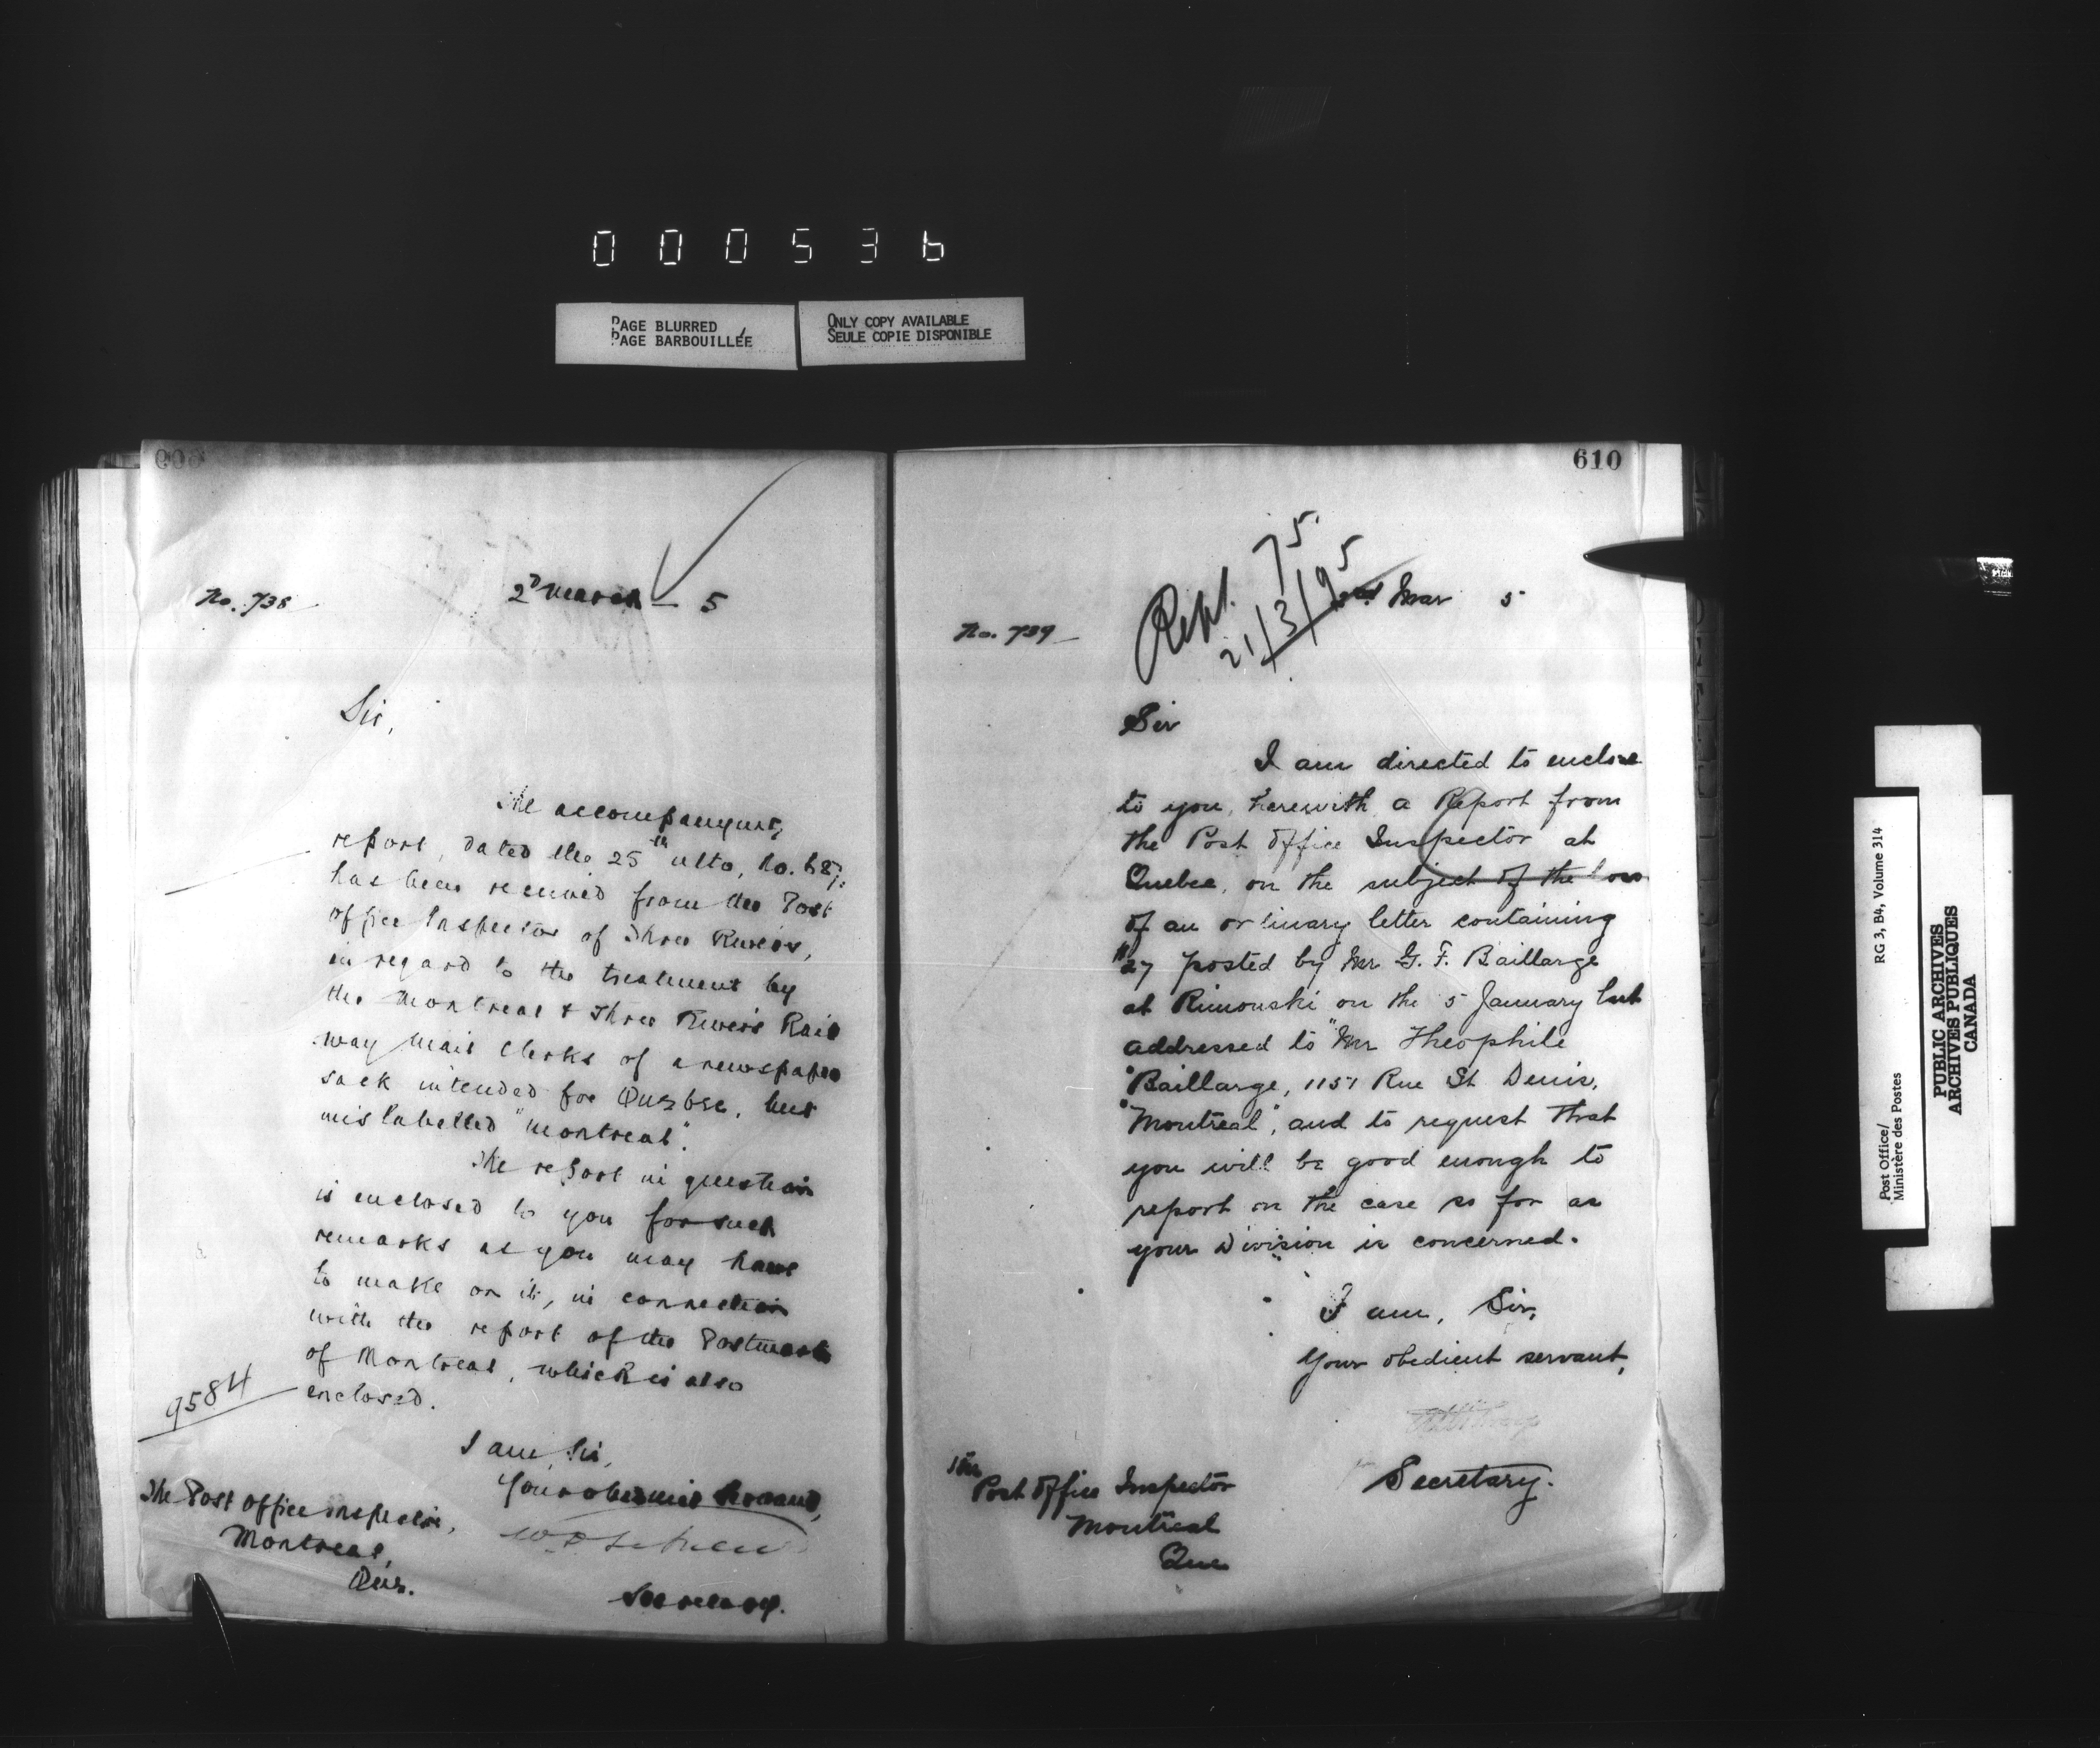 000536
PAGE BLURRED
PAGE BARBOUILLÉE
ONLY COPY AVAILABLE
SEULE COPIE DISPONIBLE
No. 738
2d March 5
Sir,
The accompanying
report, dated the 25th ulto, No. 687,
has been received from the Post
Office Inspector of Three Rivers,
in regard to the treatment by
the Montreal & Three Rivers Rail
way Mail Clerks of a newspaper
sack intended for Quebec, but
mislabelled "Montreal".
The report in question
is enclosed to you for such
remarks as you may have
to make on it, in connection
with the report of the Postmaster
of Montreal, which is also
enclosed.
9584
I am, Sir,
Your obedient Servant,
The Post Office Inspector,
Montreal,
Que.
Secretary.
610
Rept. 75.
21/3/95
Mar 5
No. 739
Sir
I am directed to enclose
to you, herewith a Report from
the Post Office Inspector at
Quebec, on the subject of the loss
of an ordinary letter containing
$27 posted by Mr G. F. Baillarge
at Rimouski on the 5 January last
addressed to "Mr Theophile
"Baillarge, 1151 Rue St Denis,
"Montreal", and to request that
you will be good enough to
report on the case so far as
your Division is concerned.
I am, Sir,
Your obedient servant,
Secretary.
The
Post Office Inspector
Montreal
Que
Post Office/
Ministère des Postes
RG 3, B4, Volume 314
PUBLIC ARCHIVES
ARCHIVES PUBLIQUES
CANADA